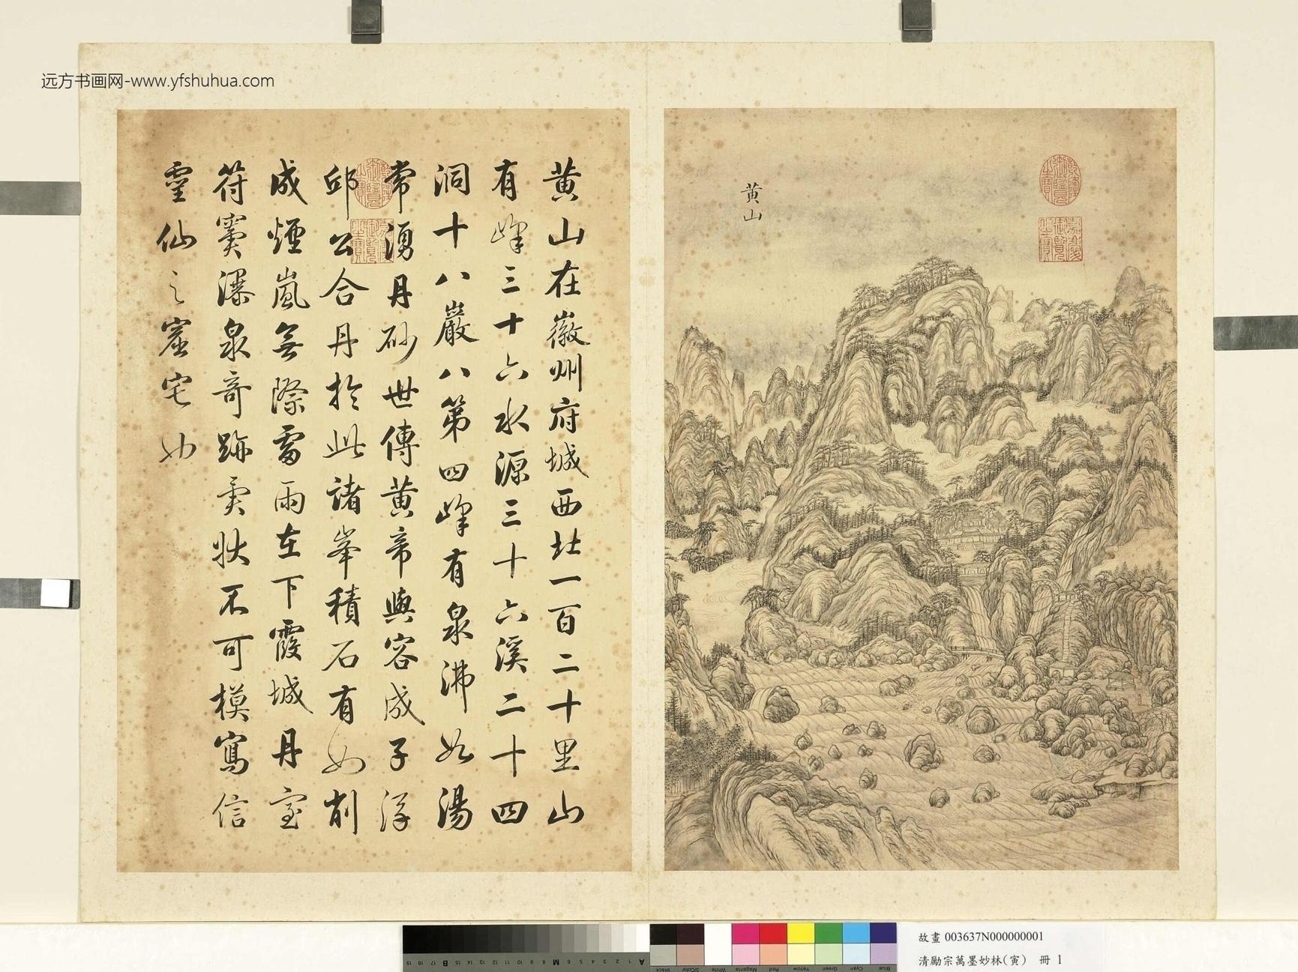 远方书画网-www.yfshuhua.com
黄山
黄山在徽州府城西北一百二十里山
有峰三十六水源三十六溪二十四
洞十八巖八第四峰有泉沸如湯
常湧丹砂世傳黄帝與容成子浮
邱公合丹於此諸峯積石有如削
成煙嵐無際雷雨在下霞城丹室
符竇瀑泉奇跡異狀不可模寫信
靈仙之窟宅也
故畫 003637N000000001
清勵宗萬墨妙林(寅) 冊 1